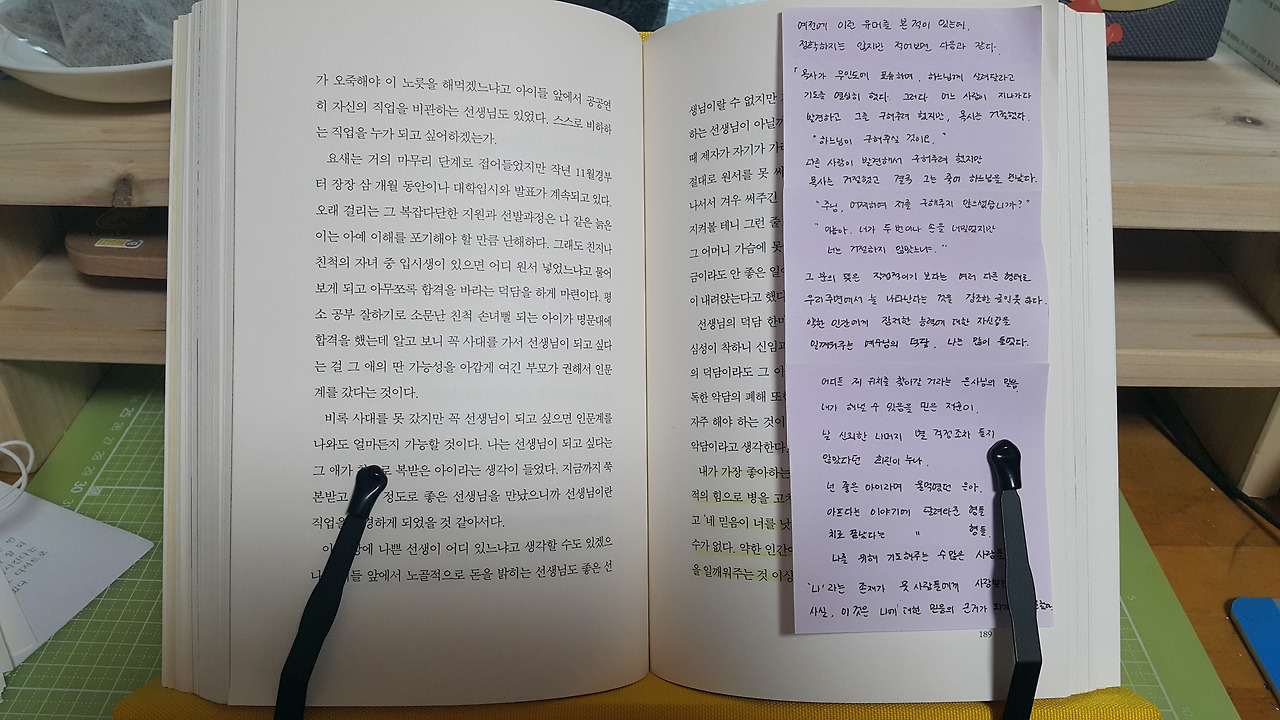 가 오죽해야 이 노릇을 해먹겠느냐고 아이들 앞에서 공공연
히 자신의 직업을 비관하는 선생님도 있었다. 스스로 비하하
는 직업을 누가 되고 싶어하겠는가.
요새는 거의 마무리 단계로 접어들었지만 작년 11월경부
터 장장 삼 개월 동안이나 대학입시와 발표가 계속되고 있다.
오래 걸리는 그 복잡다단한 지원과 선발과정은 나 같은 늙은
이는 아예 이해를 포기해야 할 만큼 난해하다. 그래도 친지나
친척의 자녀 중 입시생이 있으면 어디 원서 넣었느냐고 물어
보게 되고 아무쪼록 합격을 바라는 덕담을 하게 마련이다. 평
소 공부 잘하기로 소문난 친척 손녀뻘 되는 아이가 명문대에
합격을 했는데 알고 보니 꼭 사대를 가서 선생님이 되고 싶다
는 걸 그 애의 딴 가능성을 아깝게 여긴 부모가 권해서 인문
계를 갔다는 것이다.
비록 사대를 못 갔지만 꼭 선생님이 되고 싶으면 인문계를
나와도 얼마든지 가능할 것이다. 나는 선생님이 되고 싶다는
그 애가 복받은 아이라는 생각이 들었다. 지금까지 쭉
본받고 정도로 좋은 선생님을 만났으니까 선생님이란
직업을 경하게 되었을 것 같아서다.
이 에 나쁜 선생이 어디 있느냐고 생각할 수도 있겠으
나 이들 앞에서 노골적으로 돈을 밝히는 선생님도 좋은 선
생님이랄 수 없지만
하는 선생님이 아닐까
때 제자가 자기가 가
절대로 원서를 못 써
나서서 겨우 써주긴
지켜볼 테니 그런 줄
그 어머니 가슴에 못
금이라도 안 좋은 일이
이 내려앉는다고 했다
선생님의 덕담 한마
심성이 착하니 신임
의 덕담이라도 그 아
독한 악담의 폐해 또
자주 해야 하는 것이
악담이라고 생각한다
내가 가장 좋아하는
적의 힘으로 병을 고치
고 '네 믿음이 너를 낫
수가 없다. 약한 인간
을 일깨워주는 것 이상
189
예전에 이런 유머를 본 적이 있는데,
정확하지는 않지만 적어보면 다음과 같다.
「목사가 무인도에 표류하며, 하느님께 살려달라고
기도를 열심히 했다. 그러다 어느 사람이 지나가다
발견하고 그를 구해주려 했지만, 목사는 거절했다.
"하느님이 구해주실 것이오."
다른 사람이 발견해서 구해주려 했지만
목사는 거절했고 결국 그는 죽어 하느님을 만났다.
"주님, 어찌하여 저를 구해주지 않으셨습니까?"
내가 두 번이나 손을 내밀었지만
너는 거절하지 않았느냐."
그 분의 뜻은 보다는 여러 다른 형태로
우리 주변에서 늘 나타난다는 것을 강조한 글인 듯 하다.
약한 인간에게 잠재한 능력에 대한 자신감을
일깨워주는 예수님의 덕담. 나는 많이 들었다.
어디든 제 위치를 찾아갈 거라는 은사님의 믿음
내가 해낼 수 있음을 믿은
날 신뢰한 나머지 별 걱정조차 들지
않았다던 누나.
넌 좋은 아이라며 울먹였던
아프다는 이야기에 달려와준 형들
" 형들.
나를 위해 기도해주는 수많은 사람들
'나'라는 존재가 뭇 사람들에게
사실, 이것은 나에 대한 믿음의 근거가